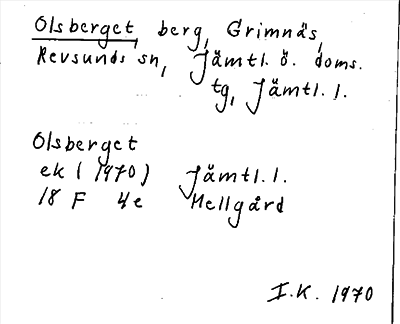 Olsberget, berg, Grimnäs,
Revsunds sn, Jämtl. ö. doms.
tg, Jämtl. l.
Olsberget
ek (1970) Jämtl. l.
18 F 4e Hellgård
I.K. 1970